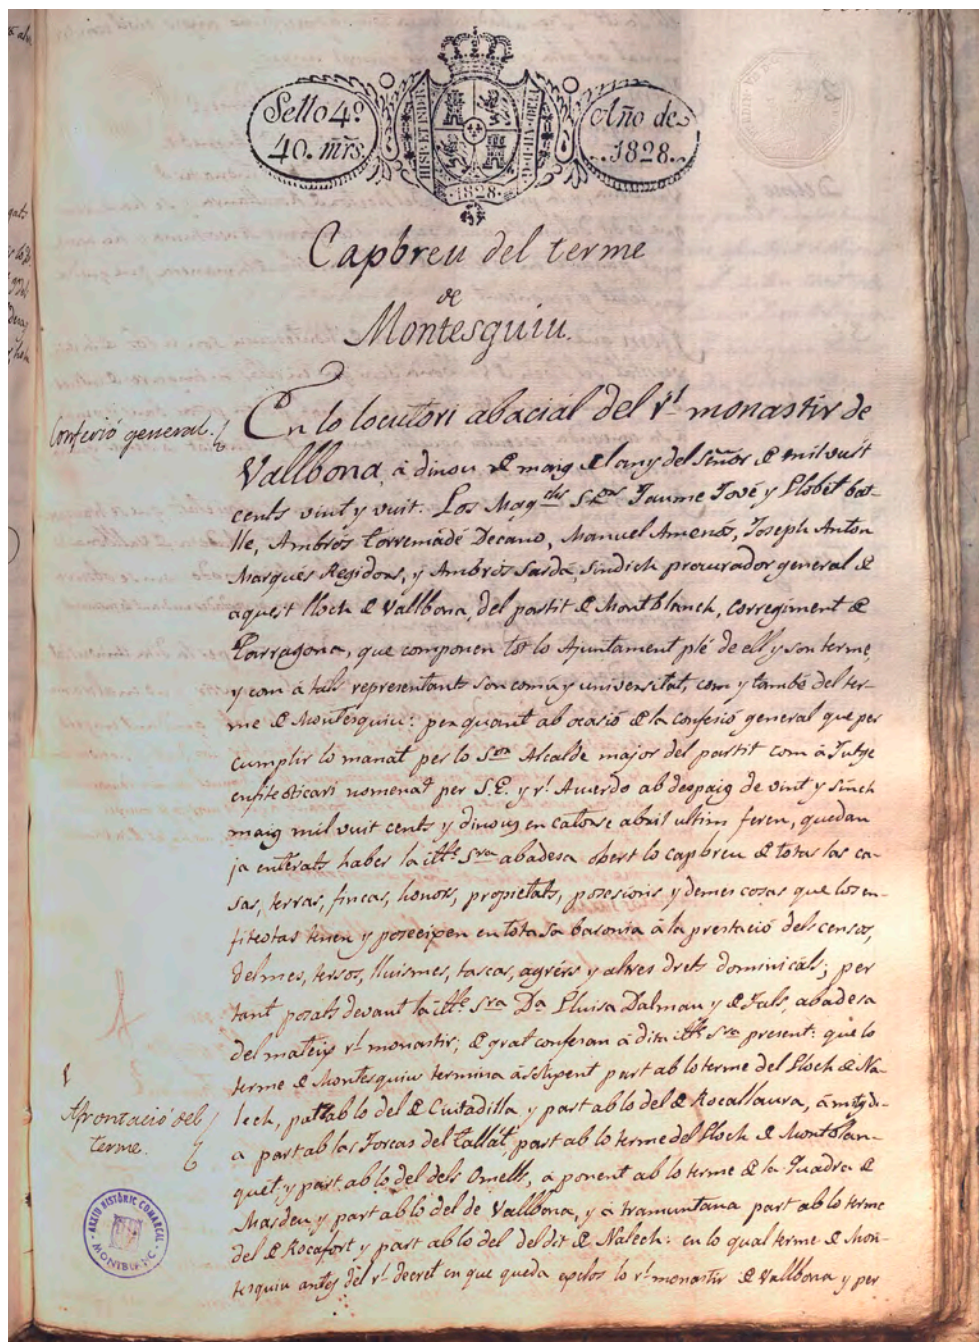 Sello 4º
40. mrs.
HISP. ET IND. R.
1828.
Año de
1828.
Capbreu del terme
de
Montesquiu.
Confesió general.
En lo locutori abacial del rl. monastir de
Vallbona, á dinou de maig del any del Señor de mil vuit
cents vint y vuit: Los Magchs Srs Jaume Jové y Llobet bat-
lle, Ambrós Torremadé Decano, Manuel Amenós, Joseph Anton
Marqués Regidors, y Ambrós Sardá, Sindich procurador general de
aquest lloch de Vallbona, del partit de Montblanch, corregiment de
Tarragona, que componen tot lo Ajuntament plé de ell y son terme,
y com á tals representant son comú y universitat, com y també del ter-
me de Montesquiu: per quant ab ocasió de la confesió general que per
cumplir lo manat per lo Sor Alcalde major del partit com á Jutge
enfiteoticari nomenat per S.E. y rl. Acuerdo ab despaig de vint y sinch
maig mil vuit cents y dinou, en catorse abril ultim feren, quedan
ja enterats haber la itte Sra abadesa obert lo capbreu de totas las ca-
sas, terras, fincas, honors, propietats, posesions y demes cosas que los en-
fiteotas tenen y poseeixen en tota sa baronia á la prestació dels censos,
delmes, tersos, lluismes, tascas, agrérs y altres drets dominicals; per
tant posats devant la itte Sra Da Lluisa Dalmau y de Fals, abadesa
del mateix rl. monastir; de grat confesan á dita itte Sra present: que lo
Afrontació del
terme.
terme de Montesquiu termina á solixent part ab lo terme del Lloch de Na-
lech, part ab lo del de Ciutadilla y part ab lo del de Rocallaura, á mitgdi-
a part ab las Forcas del Tallát, part ab lo terme del Lloch de Montblan-
quet, y part ab lo del dels Omells, á ponent ab lo terme de la Quadra de
Masdeu, y part ab lo del de Vallbona, y á tramuntana part ab lo terme
del de Rocafort y part ab lo del deldit de Nalech: en lo qual terme de Mon-
tesquiu antes del rl. decret en que queda expelos lo rl. monastir de Vallbona y per
ARXIU HISTÒRIC COMARCAL
MONTBLANC